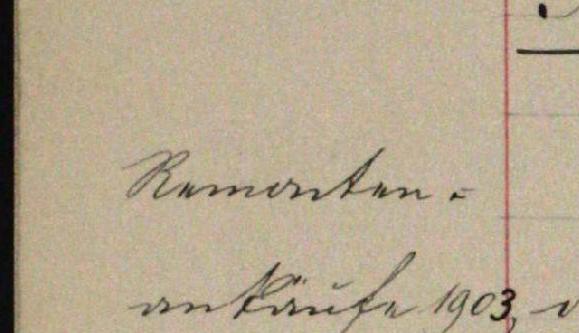 Remonten=
ankäufe 1903,